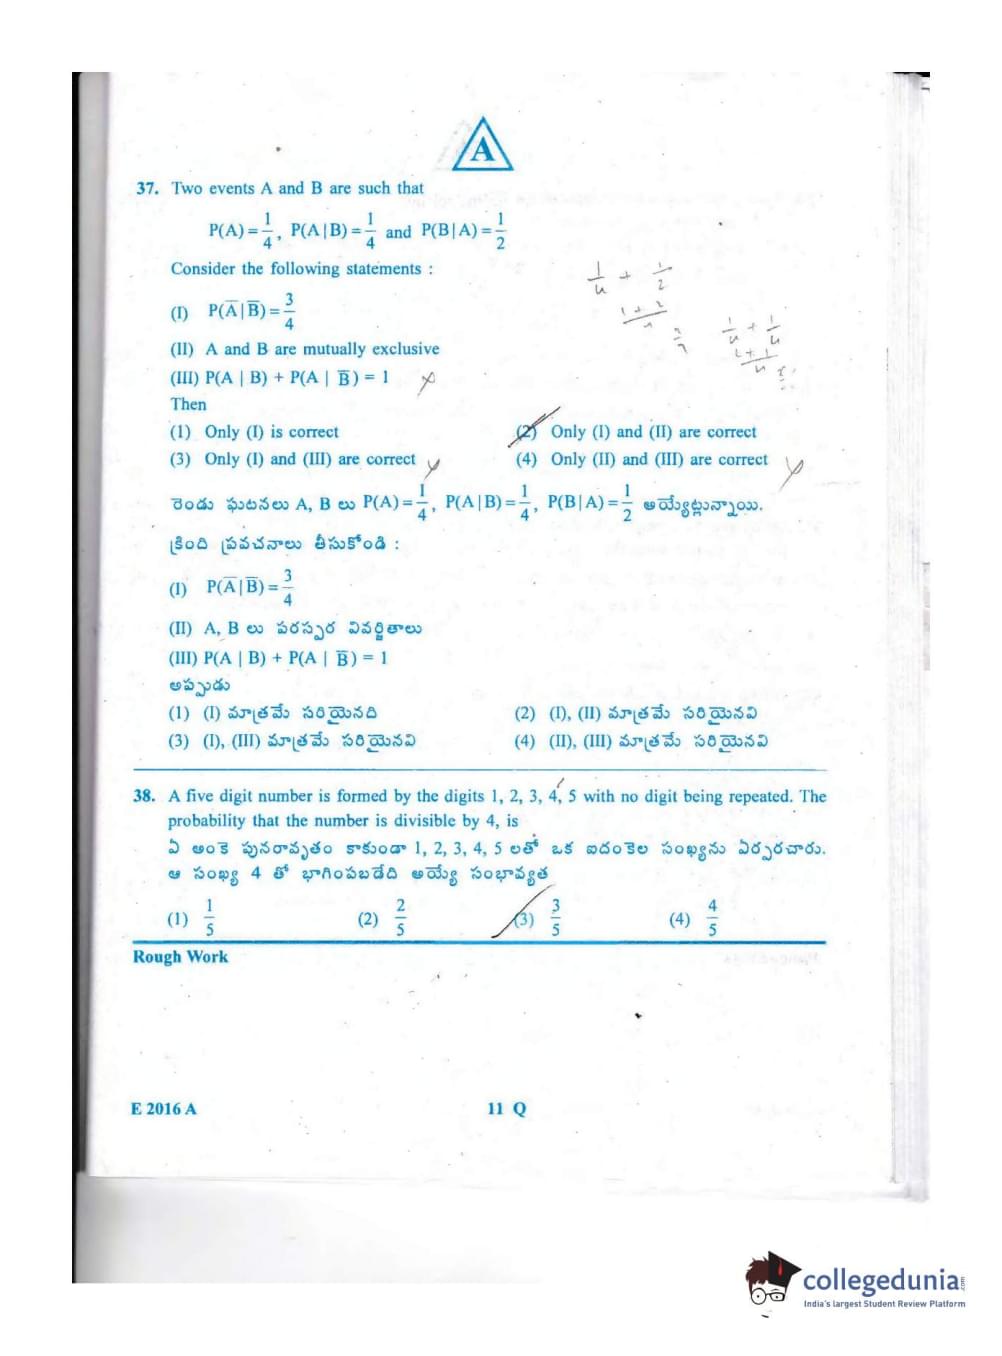 A
37. Two events A and B are such that
P(A) = 1/4, P(A|B) = 1/4 and P(B|A) = 1/2
Consider the following statements :
(I) P(A̅|B̅) = 3/4
(II) A and B are mutually exclusive
(III) P(A | B) + P(A | B̅) = 1
Then
(1) Only (I) is correct (2) Only (I) and (II) are correct
(3) Only (I) and (III) are correct (4) Only (II) and (III) are correct
రెండు ఘటనలు A, B లు P(A) = 1/4, P(A|B) = 1/4, P(B|A) = 1/2 అయ్యేట్లున్నాయి.
క్రింది ప్రవచనాలు తీసుకోండి :
(I) P(A̅|B̅) = 3/4
(II) A, B లు పరస్పర వివర్జితాలు
(III) P(A | B) + P(A | B̅) = 1
అప్పుడు
(1) (I) మాత్రమే సరియైనది (2) (I), (II) మాత్రమే సరియైనవి
(3) (I), (III) మాత్రమే సరియైనవి (4) (II), (III) మాత్రమే సరియైనవి
38. A five digit number is formed by the digits 1, 2, 3, 4, 5 with no digit being repeated. The
probability that the number is divisible by 4, is
ఏ అంకె పునరావృతం కాకుండా 1, 2, 3, 4, 5 లతో ఒక ఐదంకెల సంఖ్యను ఏర్పరచారు.
ఆ సంఖ్య 4 తో భాగింపబడేది అయ్యే సంభావ్యత
(1) 1/5 (2) 2/5 (3) 3/5 (4) 4/5
Rough Work
E 2016 A 11 Q
collegedunia.com
India's largest Student Review Platform